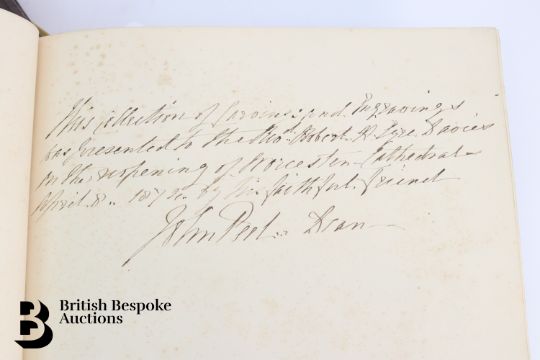 This collection of Carvings and Engravings
was presented to the Revd. Robert H Eyre Davies
on the reopening of Worcester Cathedral
April 8. 1874 by his faithful friend
John Peel Dean
British Bespoke
Auctions